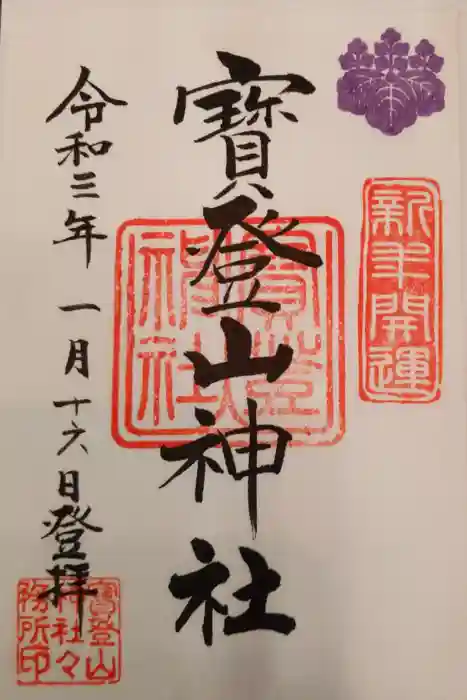 新年開運
寶登山神社
令和三年 一月十六日登拝
寶登山
神社々
務所印